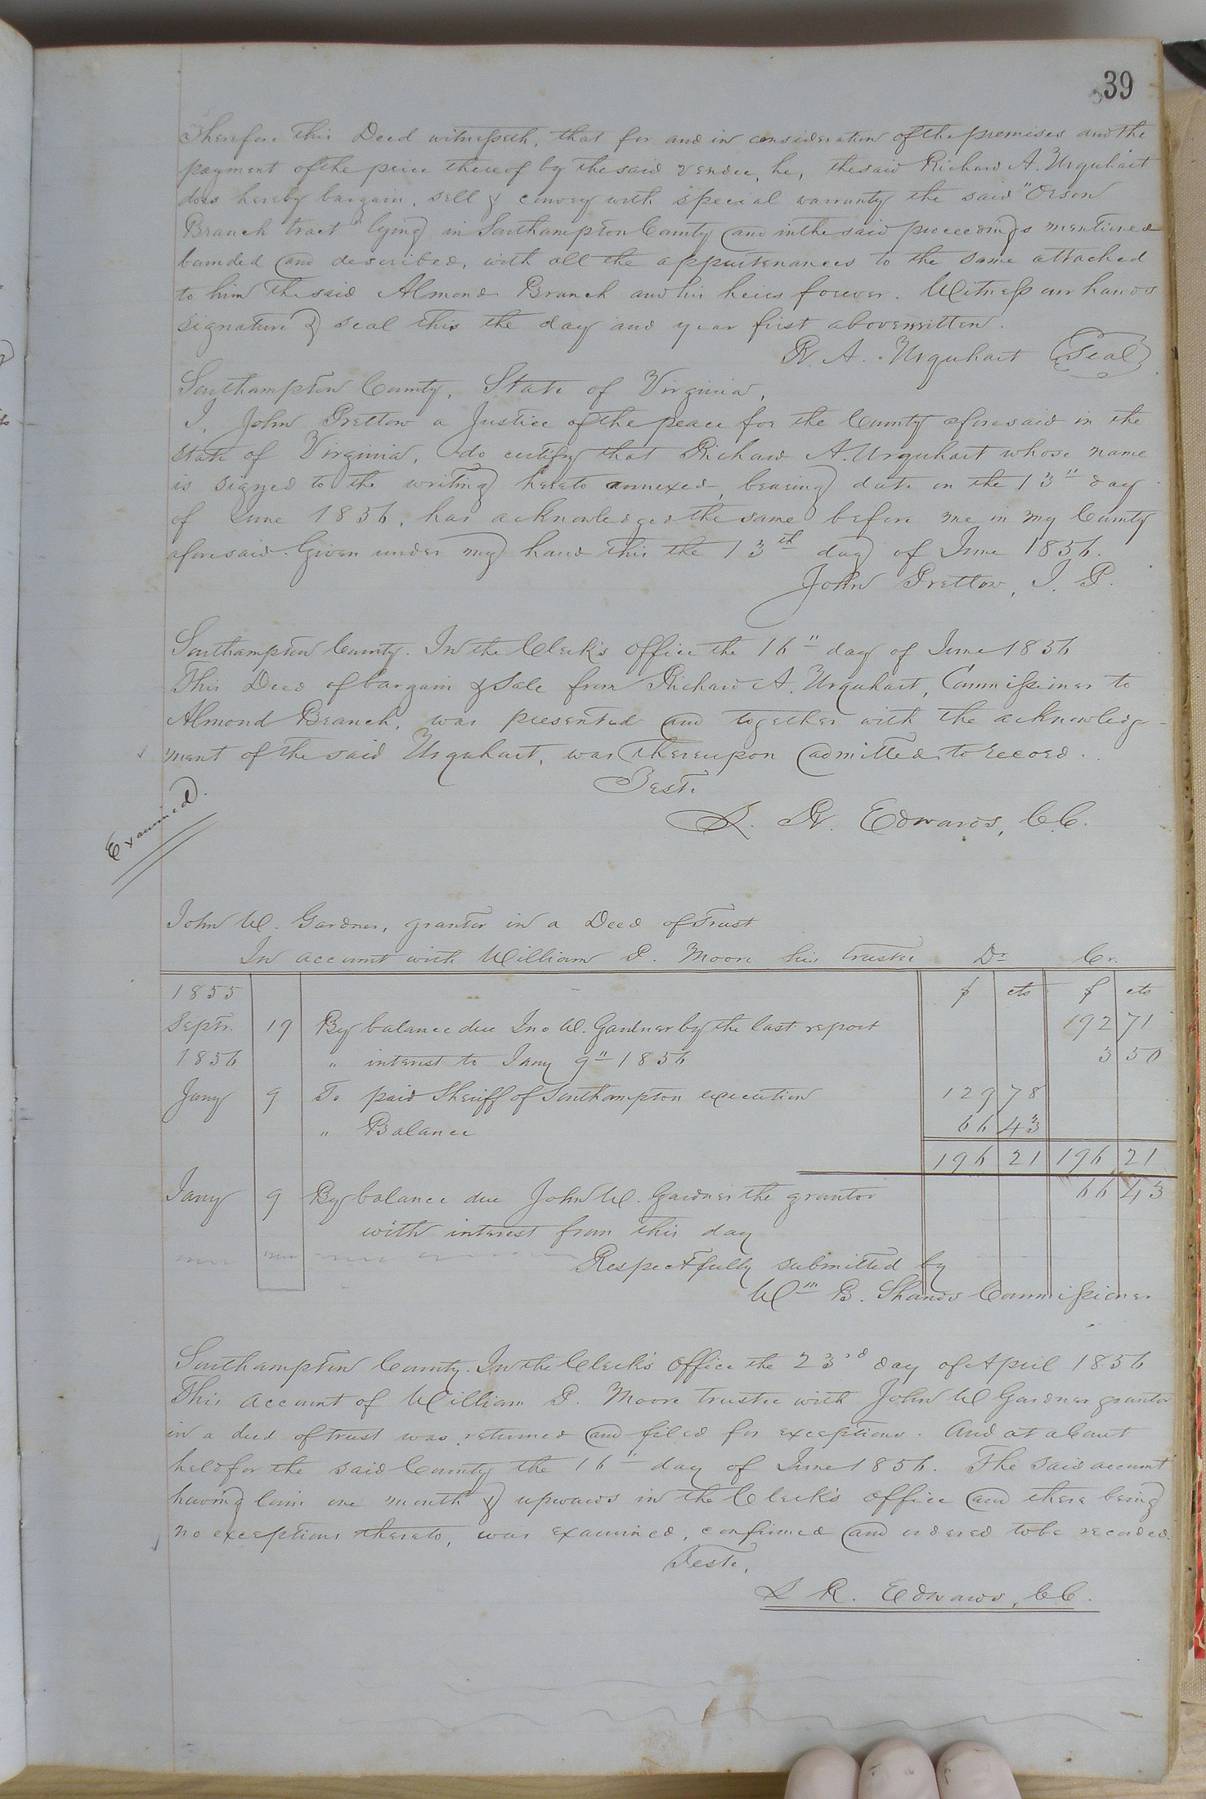 39
Therefore this Deed witnesseth, that for and in consideration of the premises and the
payment of the price thereof by the said vendee, he, the said Richard A. Urquhart
does hereby bargain, sell & convey with special warranty the said "Orson
Branch tract" lying in Southampton County and in the said proceedings mentioned
bounded and described, with all the appurtenances to the same attached
to him the said Almond Branch and his heirs forever. Witness our hands
signature & seal this the day and year first above written.
R. A. Urquhart (Seal)
Southampton County, State of Virginia,
I, John Prettow a Justice of the peace for the County aforesaid in the
State of Virginia, do certify that Richard A. Urquhart whose name
is signed to the writing hereto annexed, bearing date on the 13" day
of June 1856, has acknowledged the same before me in my County
aforesaid. Given under my hand this the 13th day of June 1856.
John Prettow, J. P.
Southampton County. In the Clerk's office the 16" day of June 1856
This Deed of bargain & Sale from Richard A. Urquhart, Commissioner to
Almond Branch, was presented and together with the acknowledg-
ment of the said Urquhart, was thereupon admitted to record.
Teste.
L. R. Edwards, C.C.
Examined.
John W. Gardner, grantor in a Deed of Trust
In account with William P. Moore his trustee Dr Cr.
1855 $ cts $ cts
Septr. 19 By balance due Jno W. Gardner by the last report 192 71
1856 " interest to Jany 9" 1856 3 50
Jany 9 To paid Sheriff of Southampton execution 129 78
" Balance 66 43
196 21 196 21
Jany 9 By balance due John W. Gardner the grantor 66 43
with interest from this day
Respectfully submitted by
Wm B. Shands Commissioner
Southampton County. In the Clerk's office the 23rd day of April 1856
This account of William P. Moore trustee with John W Gardner grantor
in a deed of trust was returned and filed for exceptions. And at a Court
held for the said County the 16" day of June 1856. The said account
having lain one month & upwards in the Clerk's office and there being
no exceptions thereto, was examined, confirmed and ordered to be recorded.
Teste,
L R. Edwards, C.C.